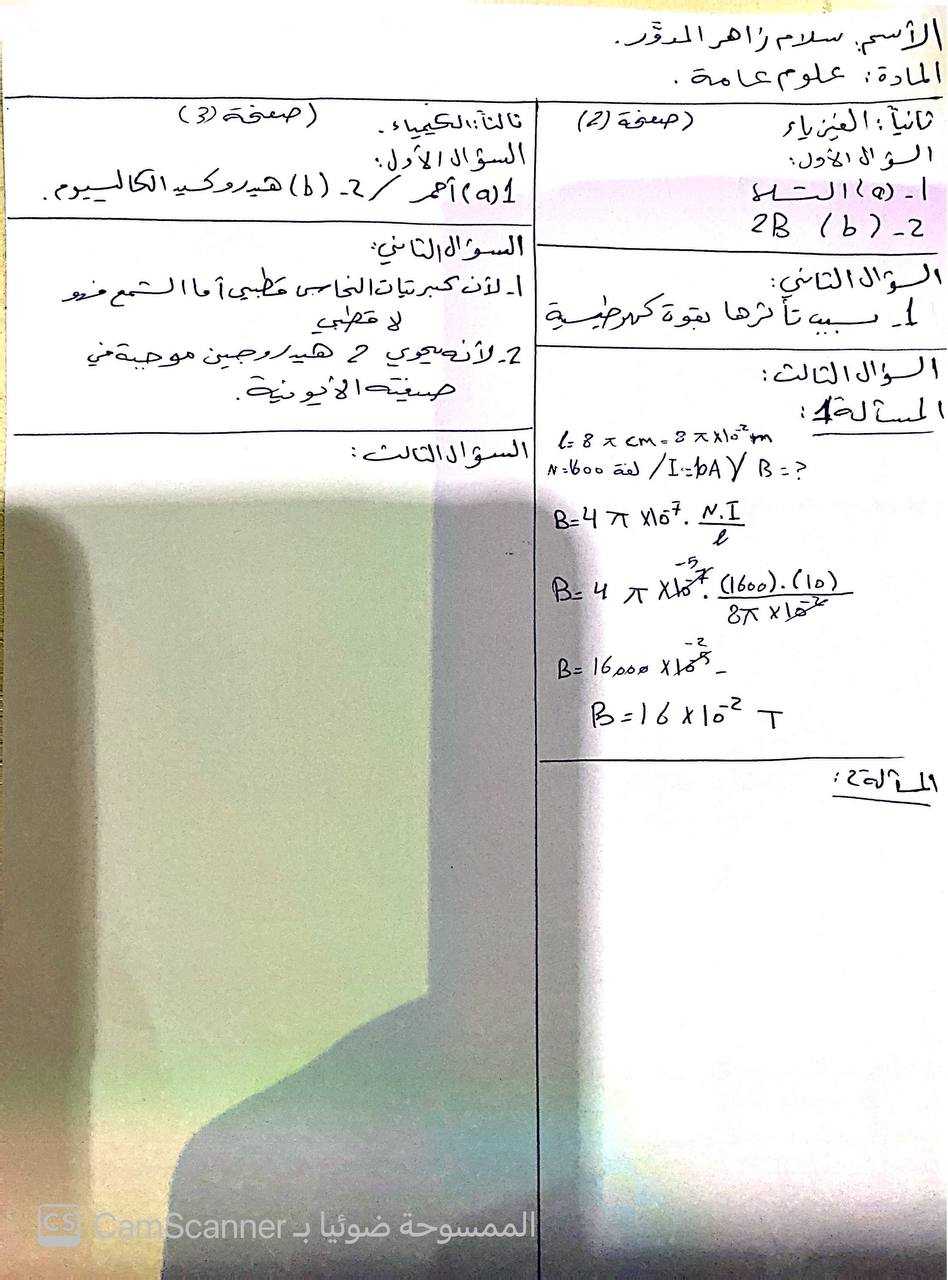 الأسم: سلام زاهر المدوّر.
المادة: علوم عامة.
ثانياً: الفيزياء (صفحة 2)
السؤال الأول:
1- (a) التسلا
2- (b) 2B
السؤال الثاني:
1- بسبب تأثرها بقوة كهرطيسية
السؤال الثالث:
المسألة 1:
l= 8 π cm = 8 π x10⁻² m
N=1600 لفة / I=10A / B = ?
B= 4 π x10⁻⁷ . N.I / l
B= 4 π x10⁻⁷ ⁻⁵ . (1600).(10) / 8π x10⁻²
B= 16000 x10⁻⁵ ⁻² -
B = 16 x10⁻² T
المسألة 2:
ثالثاً: الكيمياء. (صفحة 3)
السؤال الأول:
1 (a) أحمر / 2- (b) هيدروكسيد الكالسيوم.
السؤال الثاني:
1- لأن كبريتات النحاس قطبي أما الشمع فهو
لا قطبي
2- لأنه يحوي 2 هيدروجين موجبة في
صيغته الأيونية.
السؤال الثالث:
CS CamScanner الممسوحة ضوئيا بـ